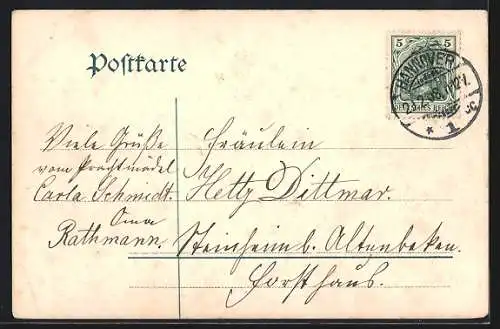 Postkarte
5 5
DEUTSCHES REICH
HANNOVER
* 1 c
Viele Grüße
vom Prachtmädel
Carla Schmidt.
Oma
Rathmann.
Fräulein
Hetty Dittmar.
Steinheim b. Altenbeken.
Forsthaus.